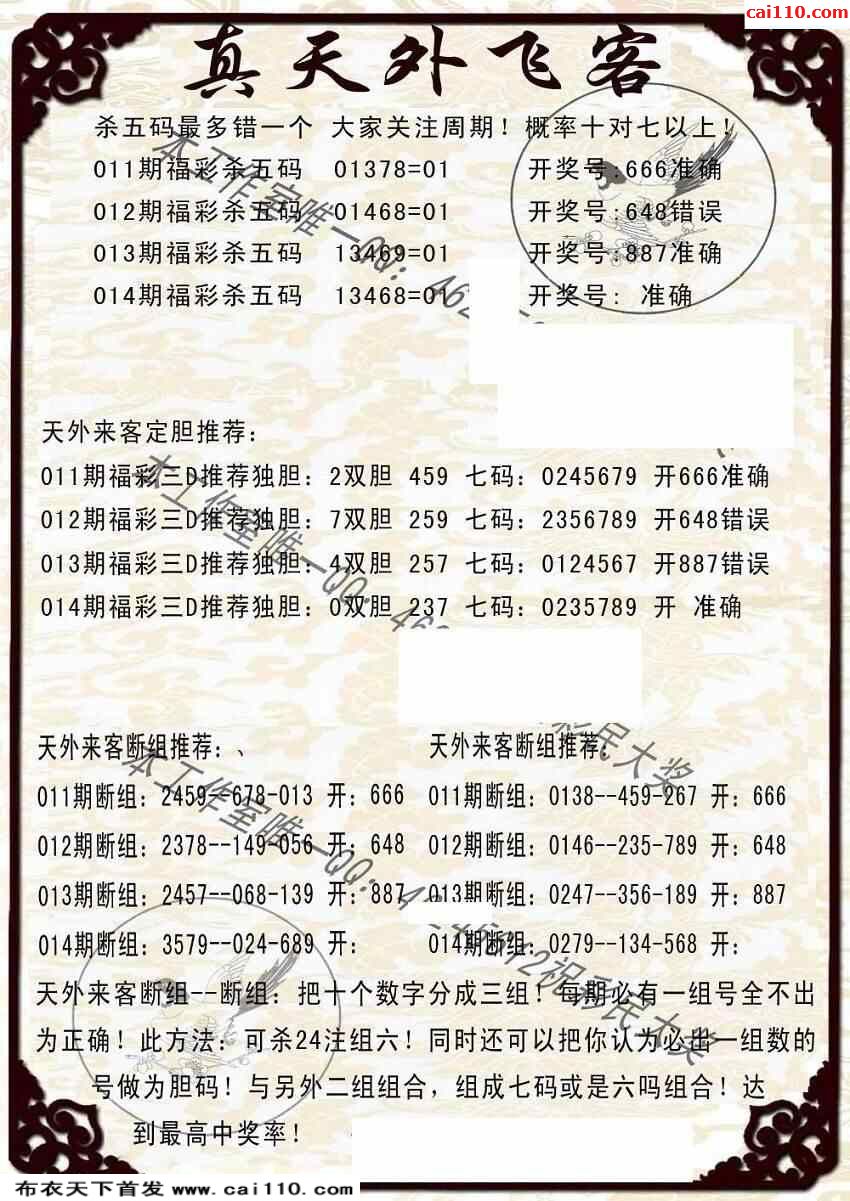 cai110.com
真天外飞客
杀五码最多错一个 大家关注周期！概率十对七以上！
011期福彩杀五码 01378=01 开奖号:666准确
012期福彩杀五码 01468=01 开奖号:648错误
013期福彩杀五码 13469=01 开奖号:887准确
014期福彩杀五码 13468=01 开奖号: 准确
天外来客定胆推荐：
011期福彩三D推荐独胆：2双胆 459 七码：0245679 开666准确
012期福彩三D推荐独胆：7双胆 259 七码：2356789 开648错误
013期福彩三D推荐独胆：4双胆 257 七码：0124567 开887错误
014期福彩三D推荐独胆：0双胆 237 七码：0235789 开 准确
天外来客断组推荐：、
011期断组：2459--678-013 开：666
012期断组：2378--149-056 开：648
013期断组：2457--068-139 开：887
014期断组：3579--024-689 开：
天外来客断组推荐：
011期断组：0138--459-267 开：666
012期断组：0146--235-789 开：648
013期断组：0247--356-189 开：887
014期断组：0279--134-568 开：
天外来客断组--断组：把十个数字分成三组！每期必有一组号全不出
为正确！此方法：可杀24注组六！同时还可以把你认为必出一组数的
号做为胆码！与另外二组组合，组成七码或是六吗组合！达
到最高中奖率！
布衣天下首发 www.cai110.com
本工作室唯一QQ：462
本工作室唯一QQ：462
彩民大奖
本工作室唯一QQ：
祝彩民大奖